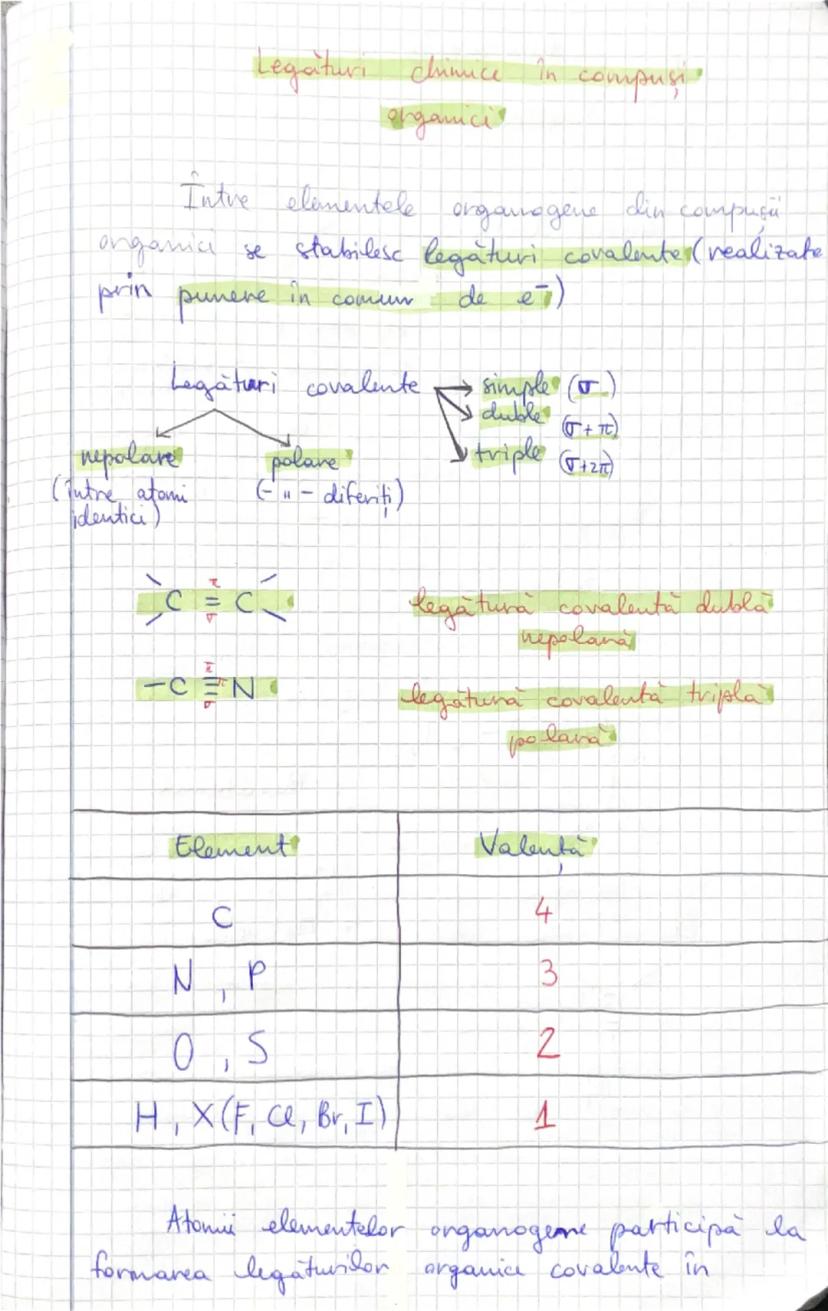 Legături chimice în compuși
organici
Între elementele organogene din compușii
organici se stabilesc legături covalente (realizate
prin punere în comun de e⁻)
Legături covalente → simple (σ)
→ duble (σ + π)
→ triple (σ+2π)
nepolare polare
(între atomi (-"- diferiți)
identici)
C = C legătură covalentă dublă
π σ
nepolară
-C ≡ N legătură covalentă triplă
π π σ
polară
Element Valență
C 4
N, P 3
O, S 2
H, X(F, Cl, Br, I) 1
Atomii elementelor organogene participă la
formarea legăturilor organici covalente în